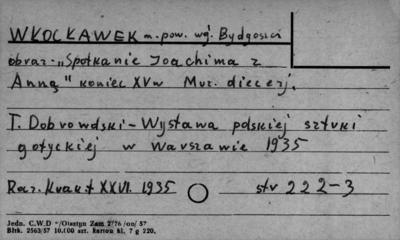 WŁOCŁAWEK m. pow. wj. Bydgoszcz
obraz - "Spotkanie Joachima z
Anną" koniec XV w Muz. diecezj.
T. Dobrowolski - Wystawa polskiej sztuki
gotyckiej w Warszawie 1935
Roz. Kraków XXVI. 1935 str 222-3
Jedn. C.W.D Olsztyn Zam 2776 /on/ 57
Bltk. 2563/57 10.000 szt. karton kl. 7 g 220.